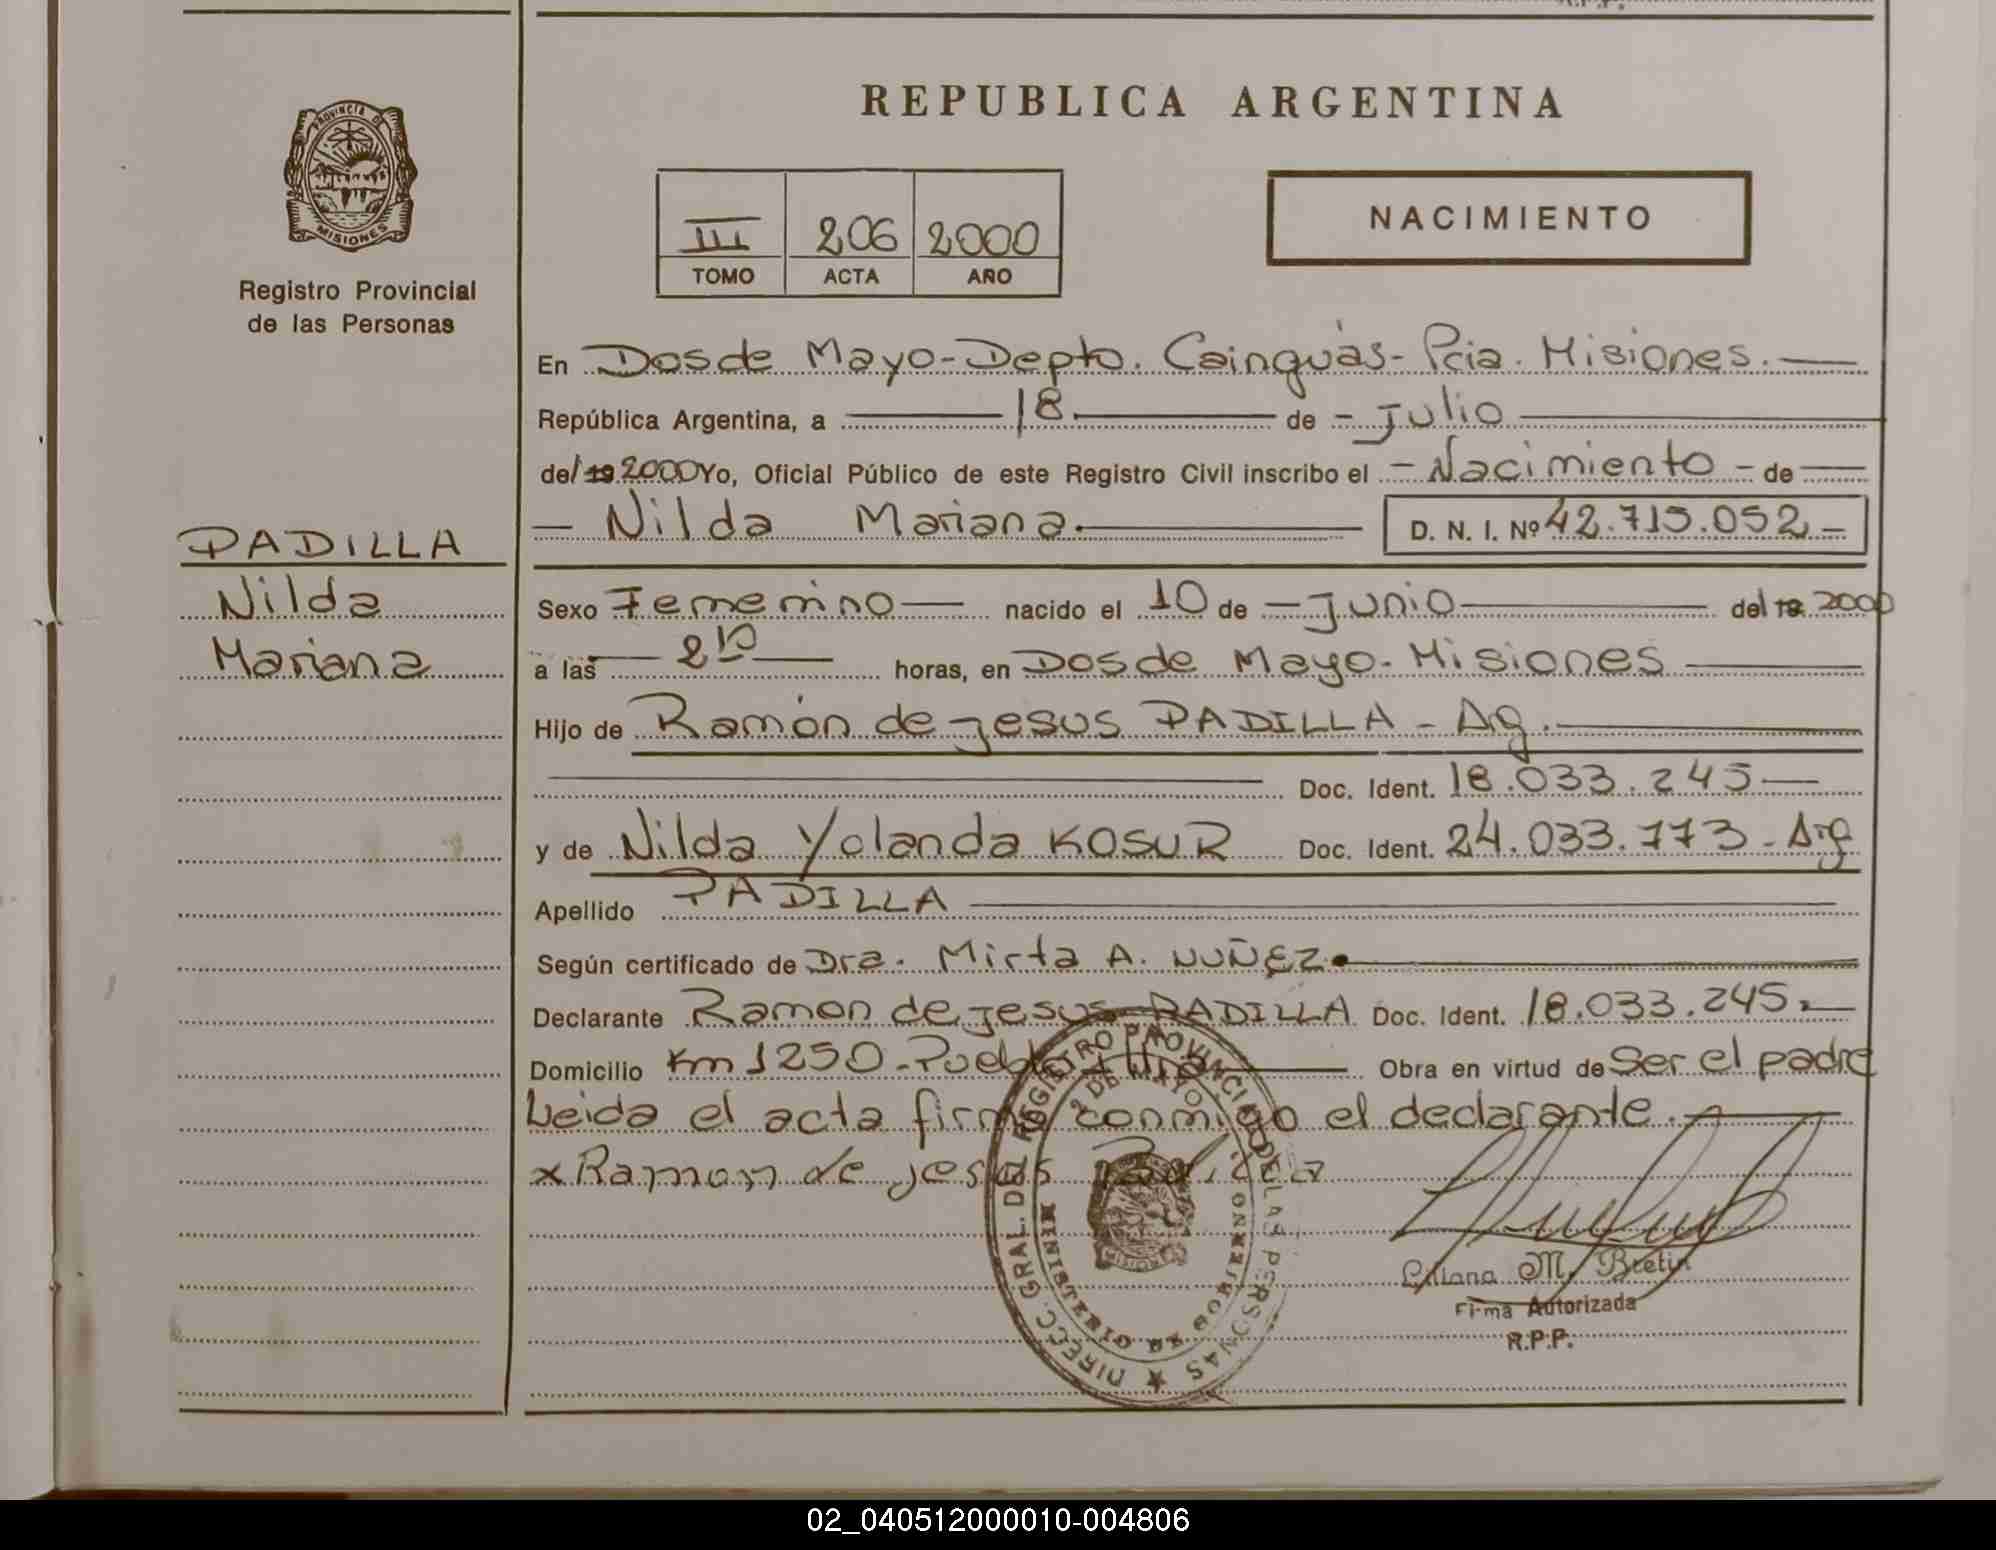 R.P.P.
PROVINCIA DE
MISIONES
Registro Provincial
de las Personas
REPUBLICA ARGENTINA
III 206 2000
TOMO ACTA AÑO
NACIMIENTO
En Dos de Mayo - Depto. Cainguás - Pcia. Misiones.
República Argentina, a 18 de - Julio
del 19 2000 Yo, Oficial Público de este Registro Civil inscribo el - Nacimiento - de
- Nilda Mariana. D. N. I. Nº 42.715.052 -
PADILLA
Nilda
Mariana
Sexo Femenino nacido el 10 de - Junio del 19 2000
a las 2 10 horas, en Dos de Mayo - Misiones
Hijo de Ramón de Jesus PADILLA - Ag.
Doc. Ident. 18.033.245
y de Nilda Yolanda KOSUR Doc. Ident. 24.033.773 - Arg
Apellido PADILLA
Según certificado de Dra. Mirta A. NUÑEZ.
Declarante Ramon de Jesus PADILLA Doc. Ident. 18.033.245.
Domicilio Km 1250 - Pueblo Obra en virtud de Ser el padre
Leida el acta firma conmigo el declarante.
x Ramon de Jesus Padilla
DIRECC. GRAL. DEL REGISTRO PROVINCIAL DE LAS PERSONAS
2 DE MAYO
MINISTERIO DE GOBIERNO
MISIONES
Liliana M. Bretin
Firma Autorizada
R.P.P.
02_040512000010-004806